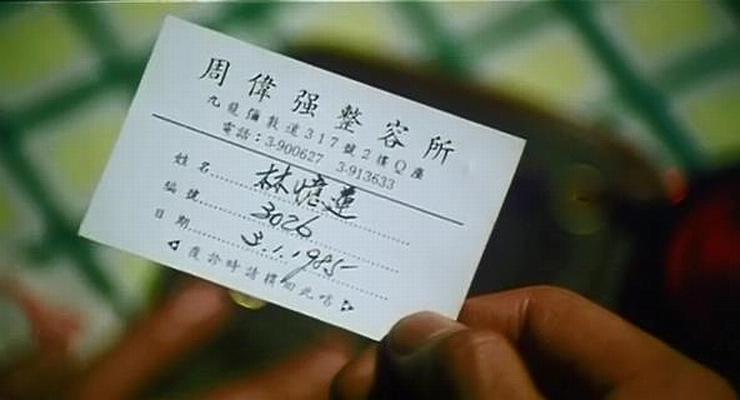 周偉强整容所
九龍彌敦道317號2樓Q座
電話：3-900627 3-913633
姓名 林憶蓮
編號 3026
日期 3.1.1985
覆診時請攜回此咭